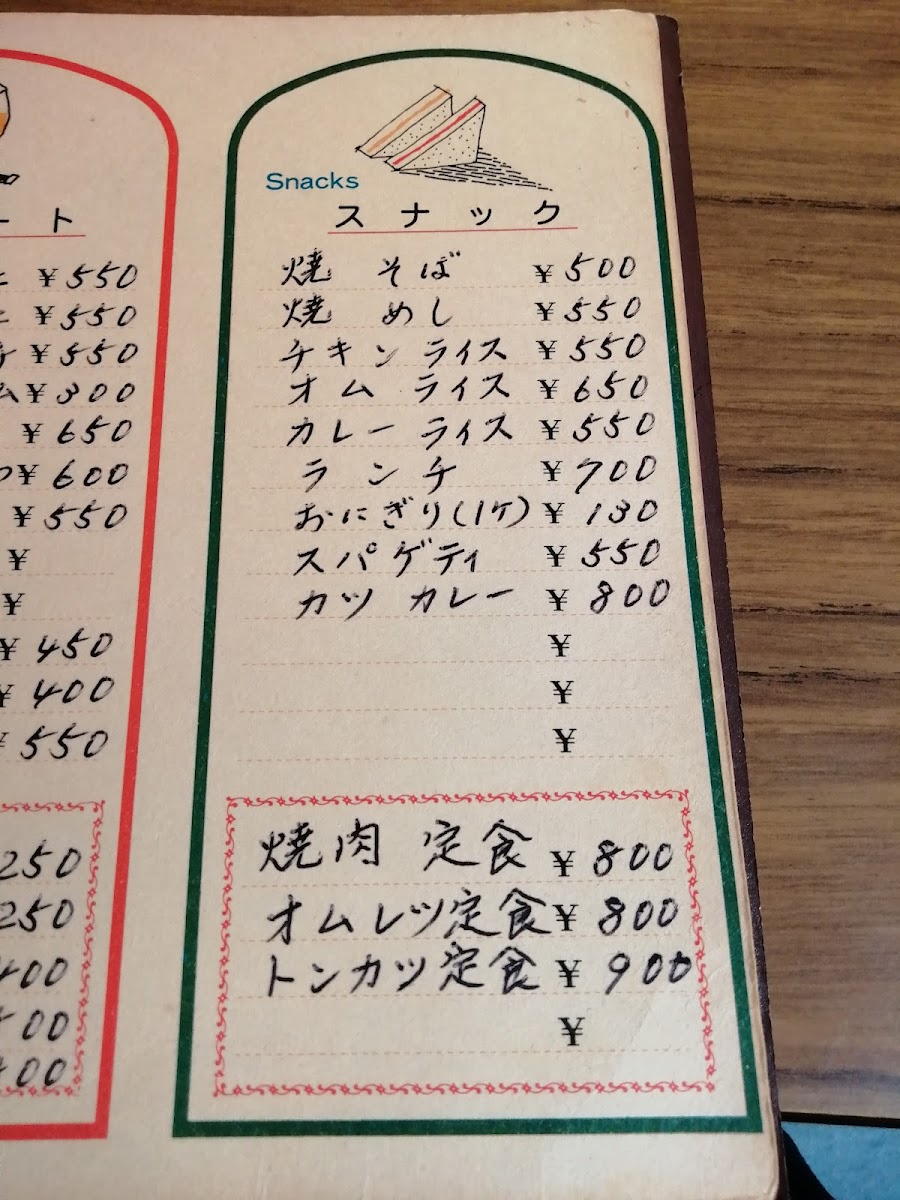 ート
¥550
¥550
¥550
ム¥300
¥650
つ¥600
¥550
¥
¥
¥450
¥400
¥550
250
250
400
400
Snacks
スナック
焼 そば ¥500
焼 めし ¥550
チキン ライス ¥550
オム ライス ¥650
カレー ライス ¥550
ランチ ¥700
おにぎり(1ケ) ¥130
スパゲティ ¥550
カツ カレー ¥800
¥
¥
¥
焼肉 定食 ¥800
オムレツ定食 ¥800
トンカツ定食 ¥900
¥